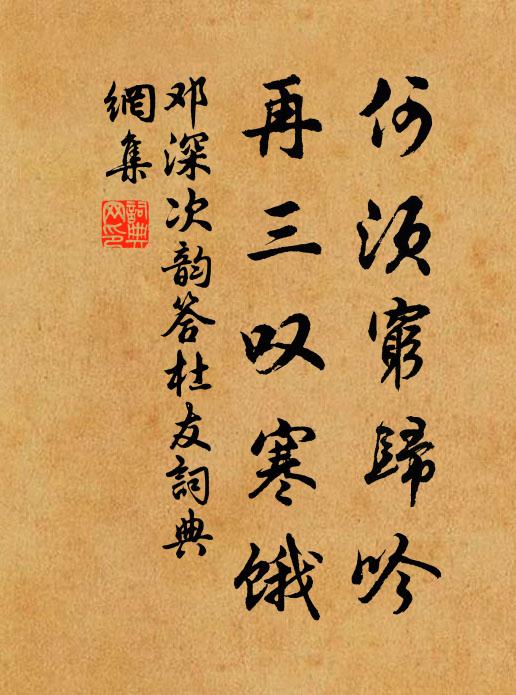 何须窮歸吟
再三叹寒饿
邓深次韵答杜友詞典
網集
詞典
网印